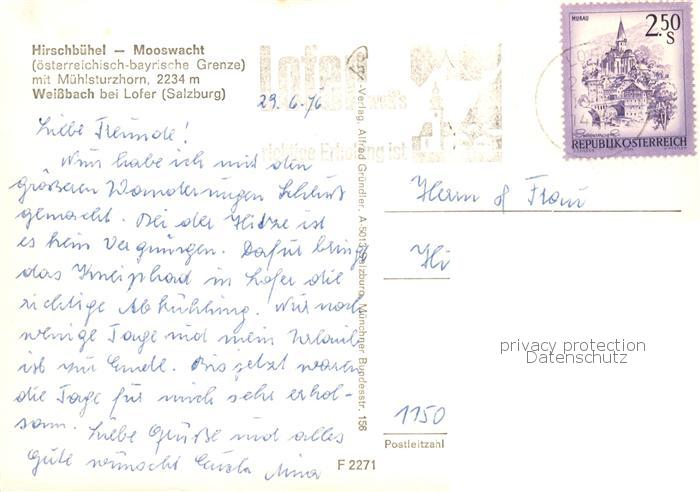 Hirschbühel — Mooswacht
(österreichisch-bayrische Grenze)
mit Mühlsturzhorn, 2234 m
Weißbach bei Lofer (Salzburg)
29.6.76
Liebe Freunde!
Nun habe ich mit den
größeren Wanderungen Schluß
gemacht. Bei der Hitze ist
es kein Vergnügen. Dafür bringt
das Kneipbad in Lofer die
richtige Abkühlung. Nur noch
wenige Tage und mein Urlaub
ist zur Ende. Bis jetzt waren
die Tage für mich sehr erhol-
sam. Liebe Grüße und alles
Gute wünscht
F 2271
-Verlag, Alfred Gründler, A-5013 Salzburg, Münchner Bundesstr. 156
Lofer
richtige Erholung ist
MURAU
2.50
S
REPUBLIK ÖSTERREICH
Herrn & Frau
Hi
privacy protection
Datenschutz
1150
Postleitzahl